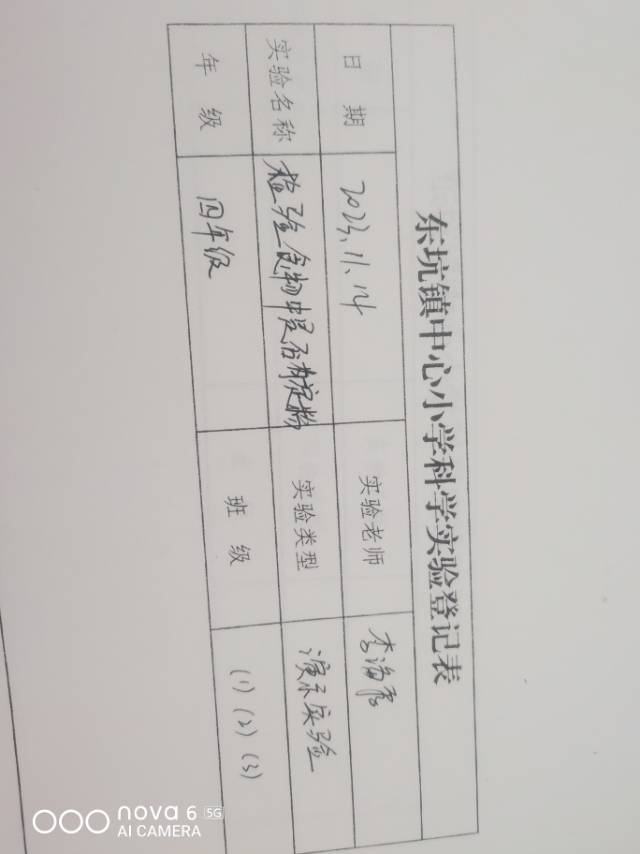 东坑镇中心小学科学实验登记表
日 期 2023.11.14 实验老师 李海
实验名称 检验食物中是否有淀粉 实验类型 演示实验
年 级 四年级 班 级 (1)(2)(3)
nova 6 5G
AI CAMERA